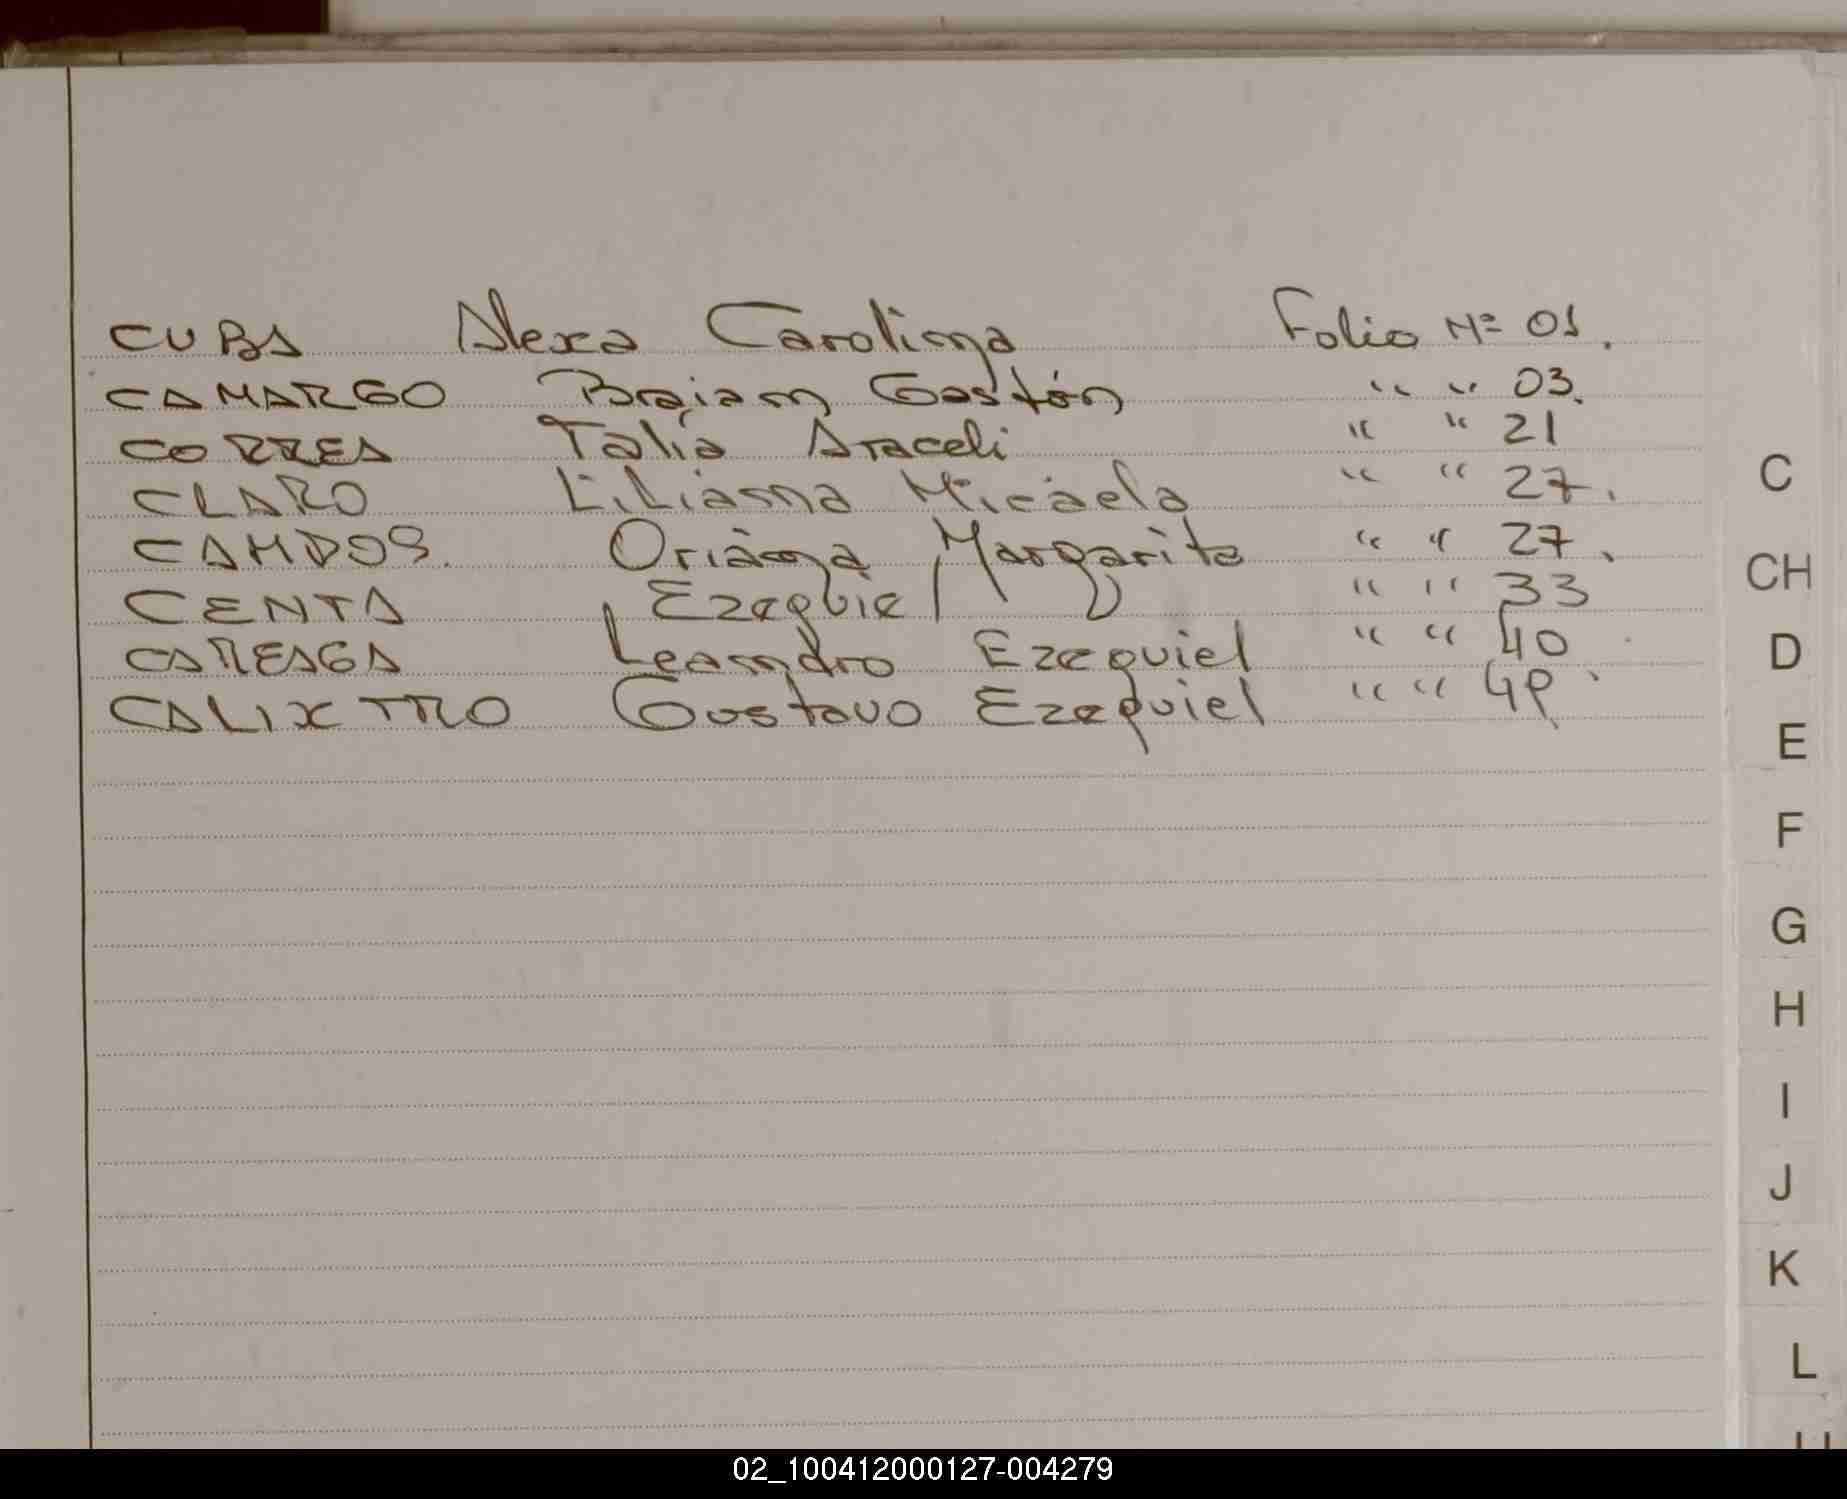 CUBA Alexa Carolina Folio Nº 01.
CAMARGO Braian Gastón " " 03.
CORREA Talia Araceli " " 21
CLARO Liliana Micaela " " 27.
CAMPOS. Oriana Margarita " " 27.
CENTA Ezequiel " " 33
CAREAGA Leandro Ezequiel " " 40
CALIXTRO Gustavo Ezequiel " "
C
CH
D
E
F
G
H
I
J
K
L
02_100412000127-004279